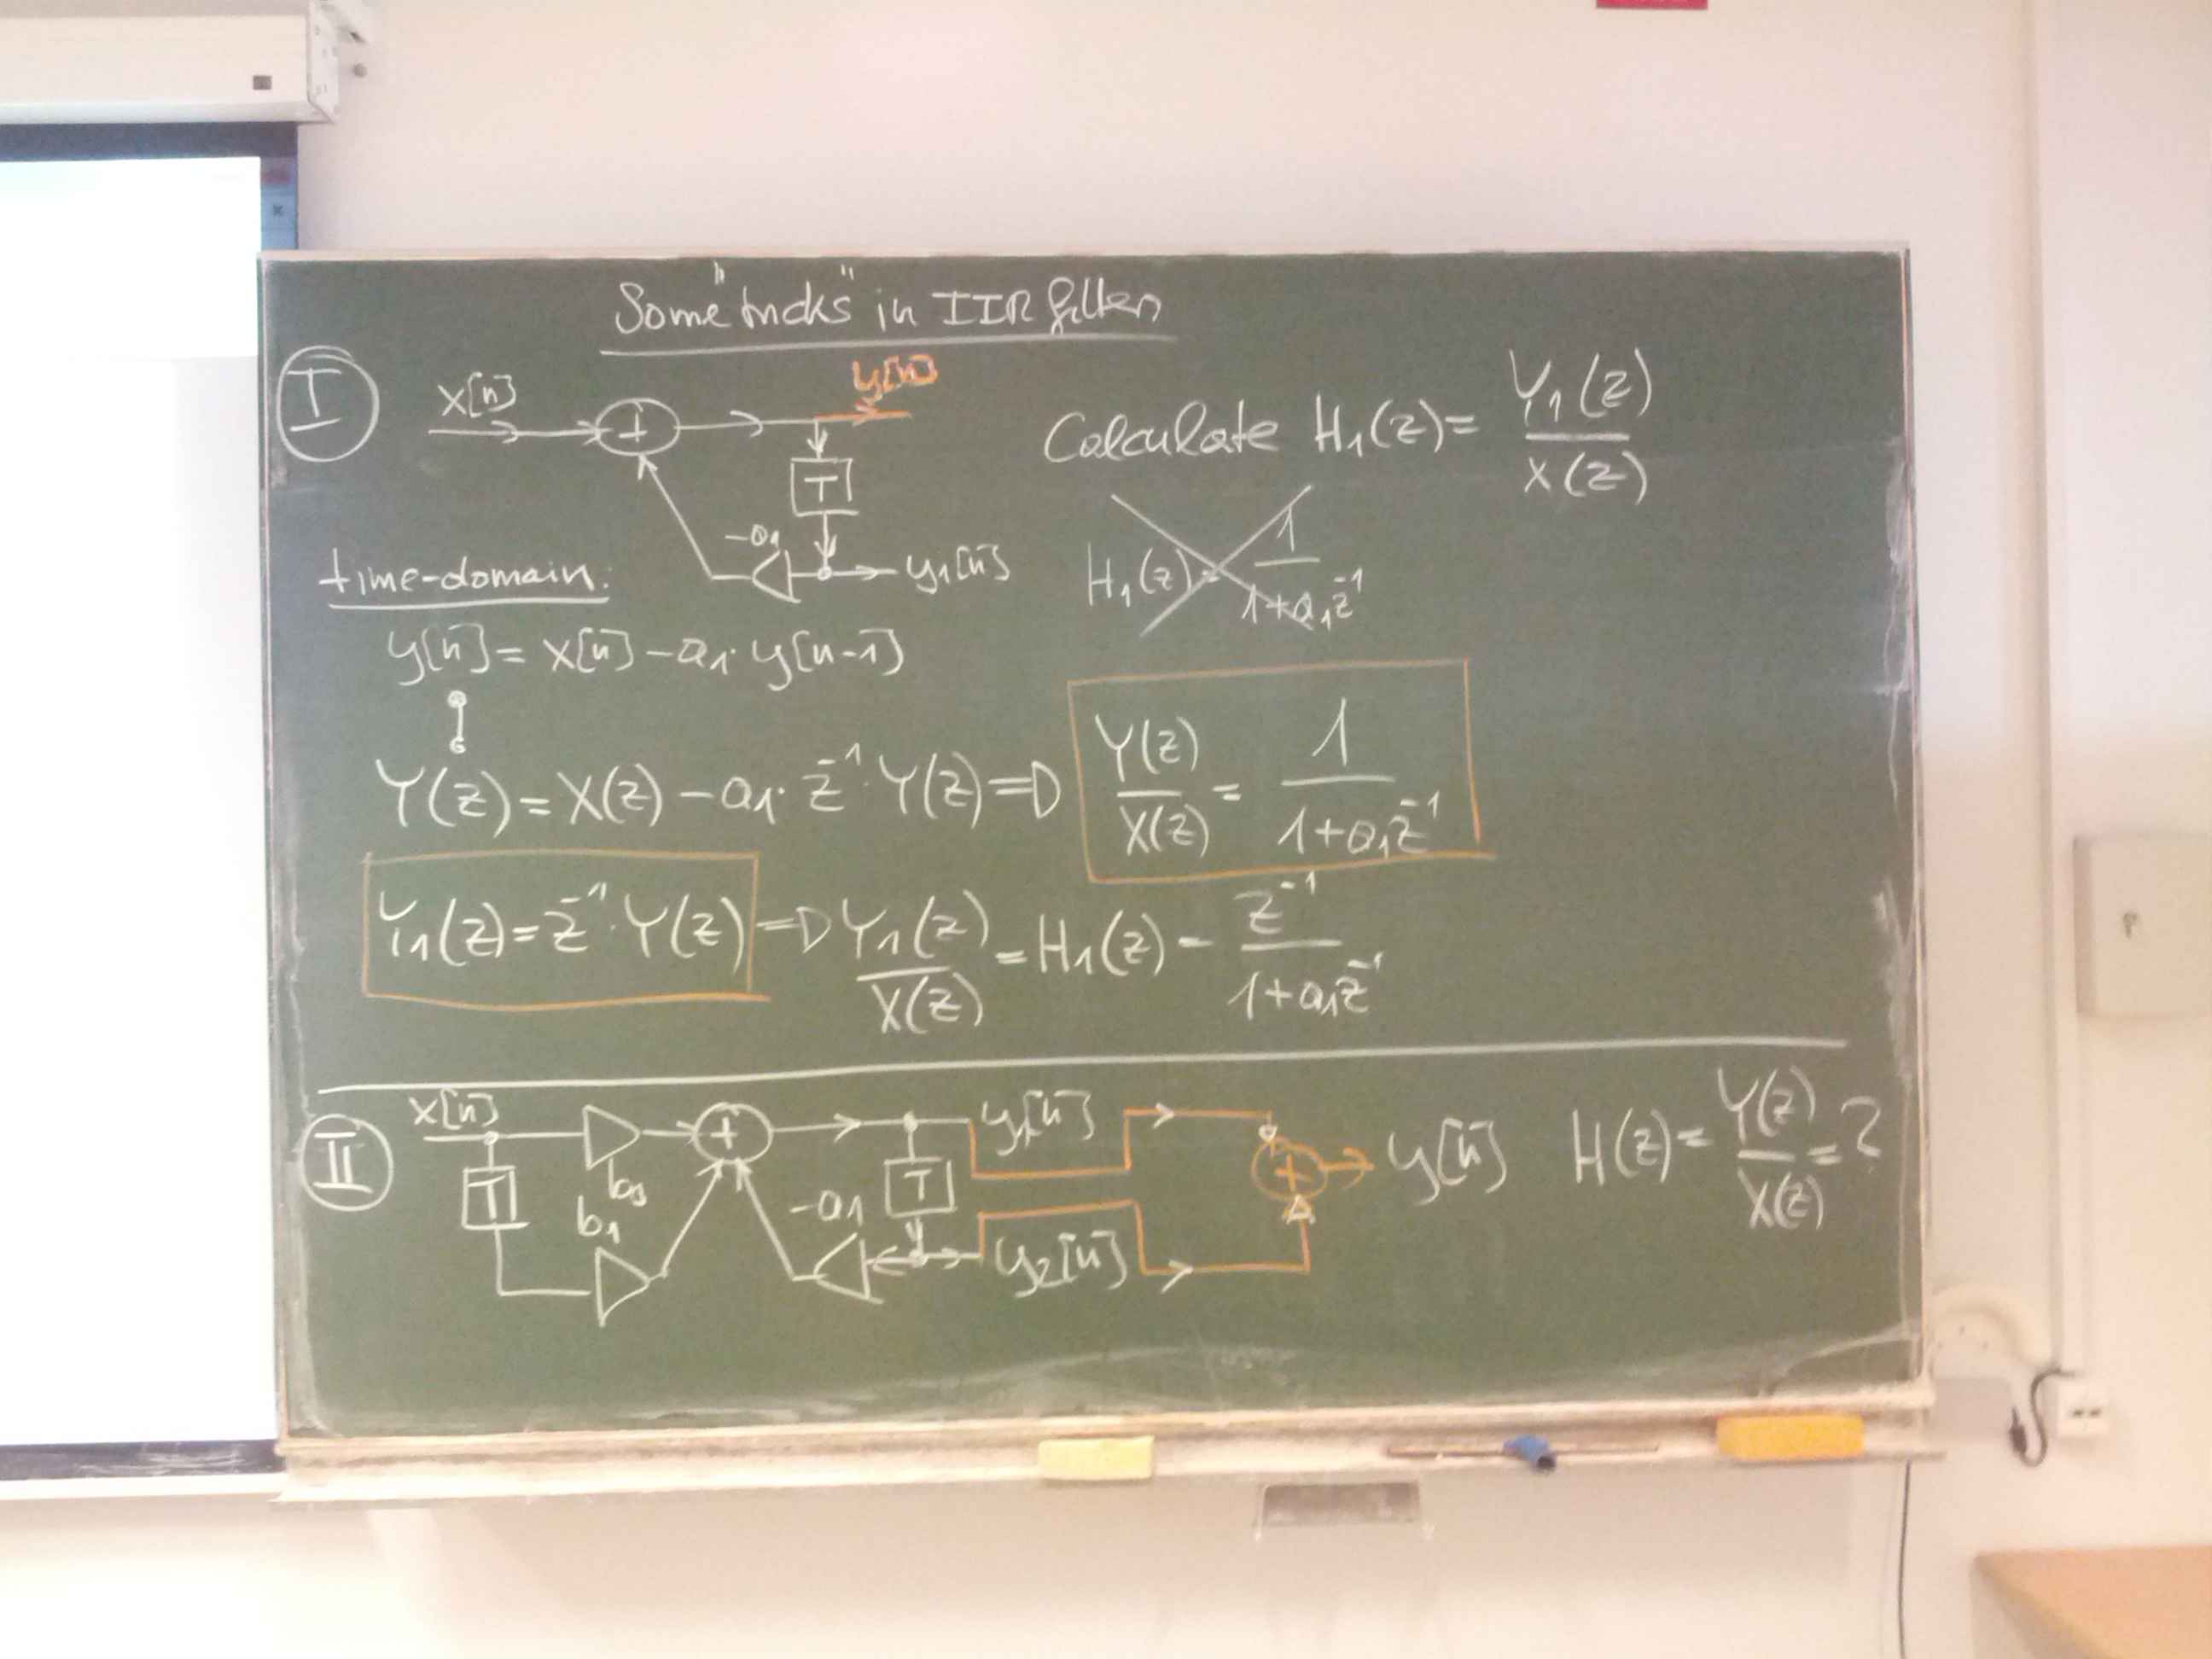 Some "tricks" in IIR filters
I
x[n]
+
y[n]
T
-a₁
y₁[n]
Calculate H₁(z) = Y₁(z) / X(z)
H₁(z) = 1 / (1+a₁z⁻¹)
time-domain:
y[n] = x[n] - a₁· y[n-1]
Y(z) = X(z) - a₁· z⁻¹· Y(z) => Y(z) / X(z) = 1 / (1+a₁z⁻¹)
Y₁(z) = z⁻¹· Y(z) => Y₁(z) / X(z) = H₁(z) = z⁻¹ / (1+a₁z⁻¹)
II
x[n]
T
b₀
b₁
+
-a₁
T
y₁[n]
y₂[n]
+
y[n]
H(z) = Y(z) / X(z) = ?